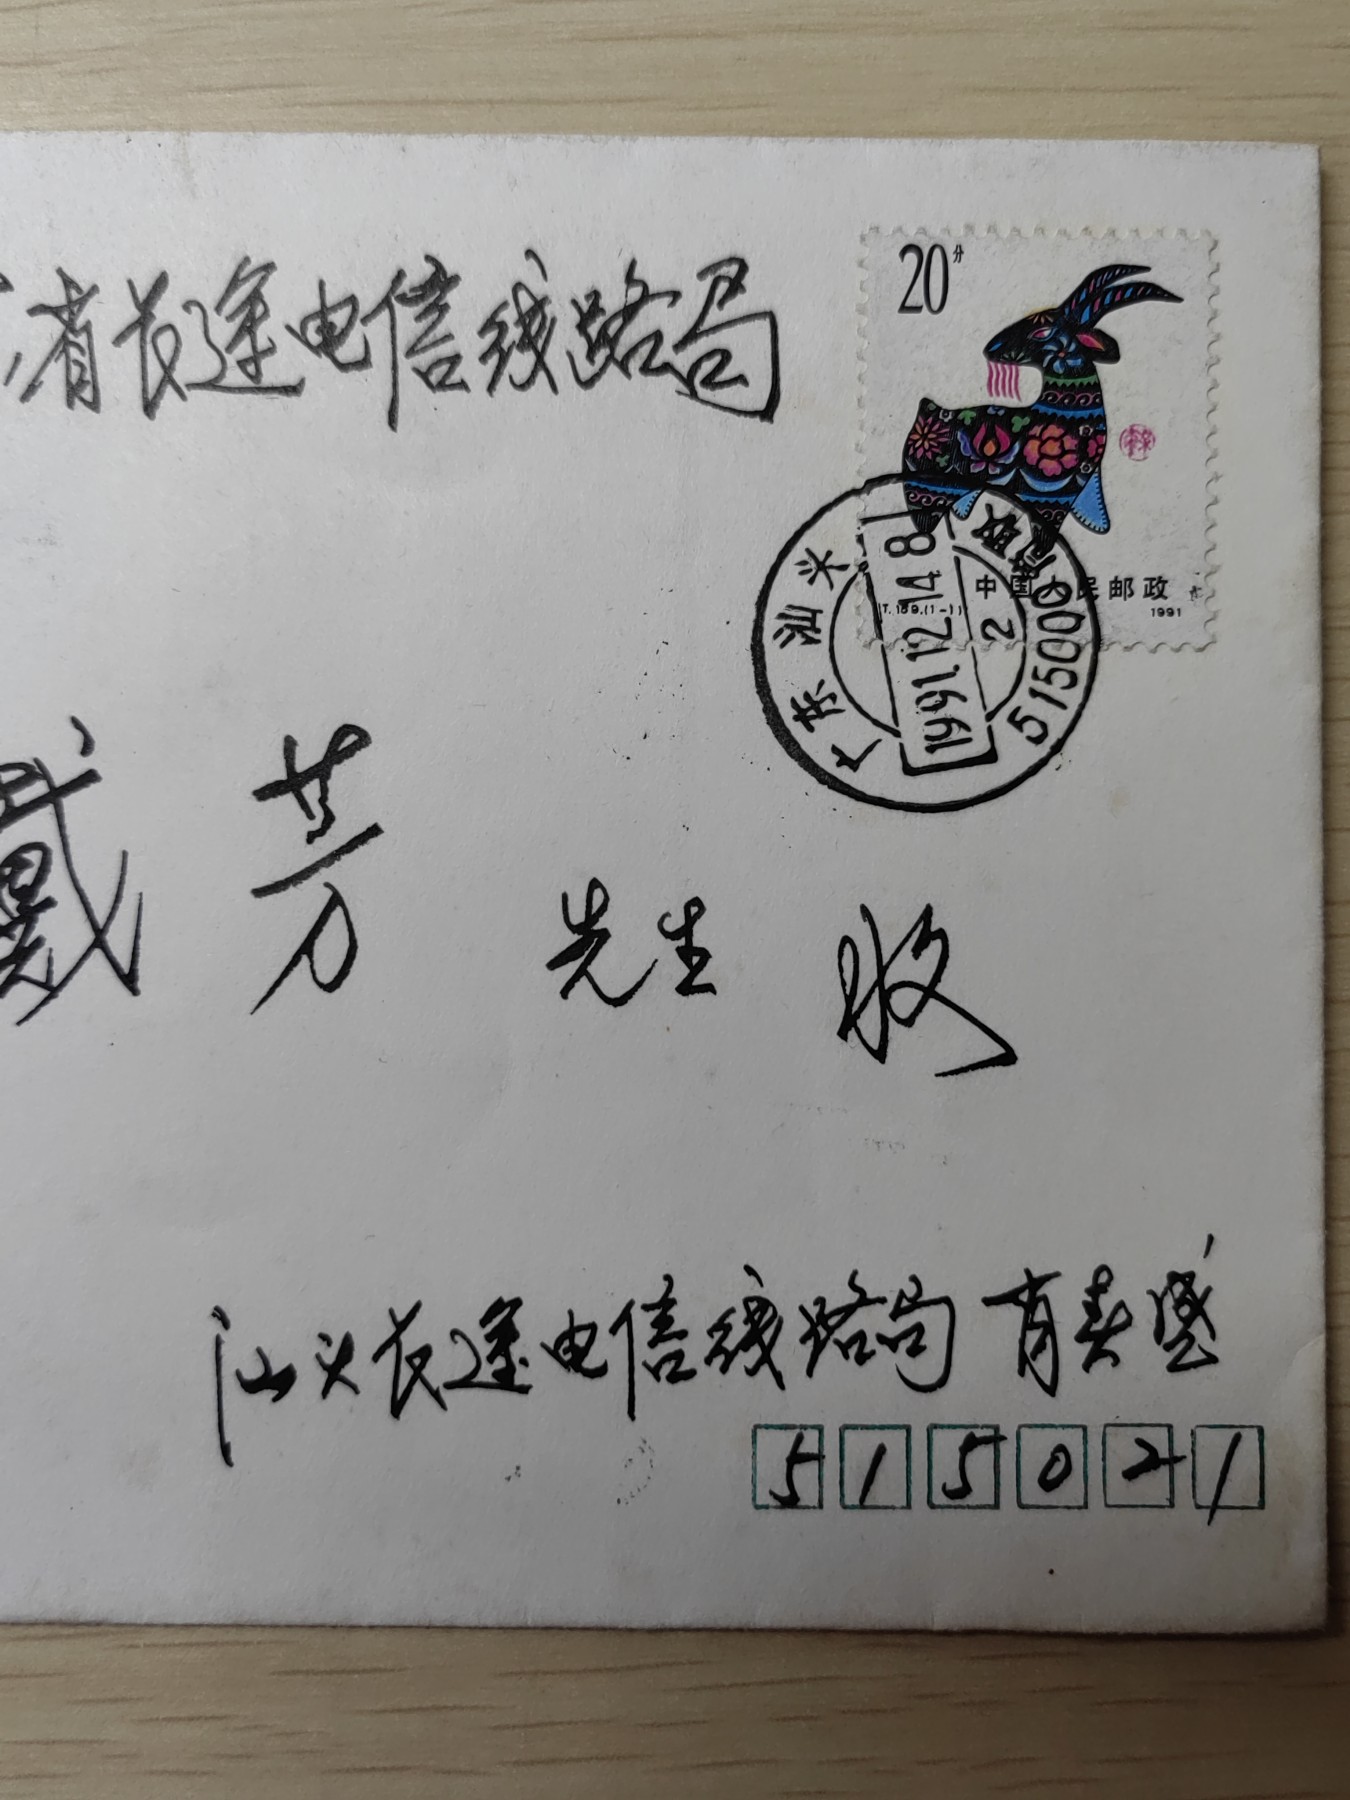 省长途电信线路局
20分
T.159.(1-1)
中国人民邮政
1991
广东汕头
1991.12.14.8
2
515000
戴芳 先生 收
汕头长途电信线路局 肖春盛
515021